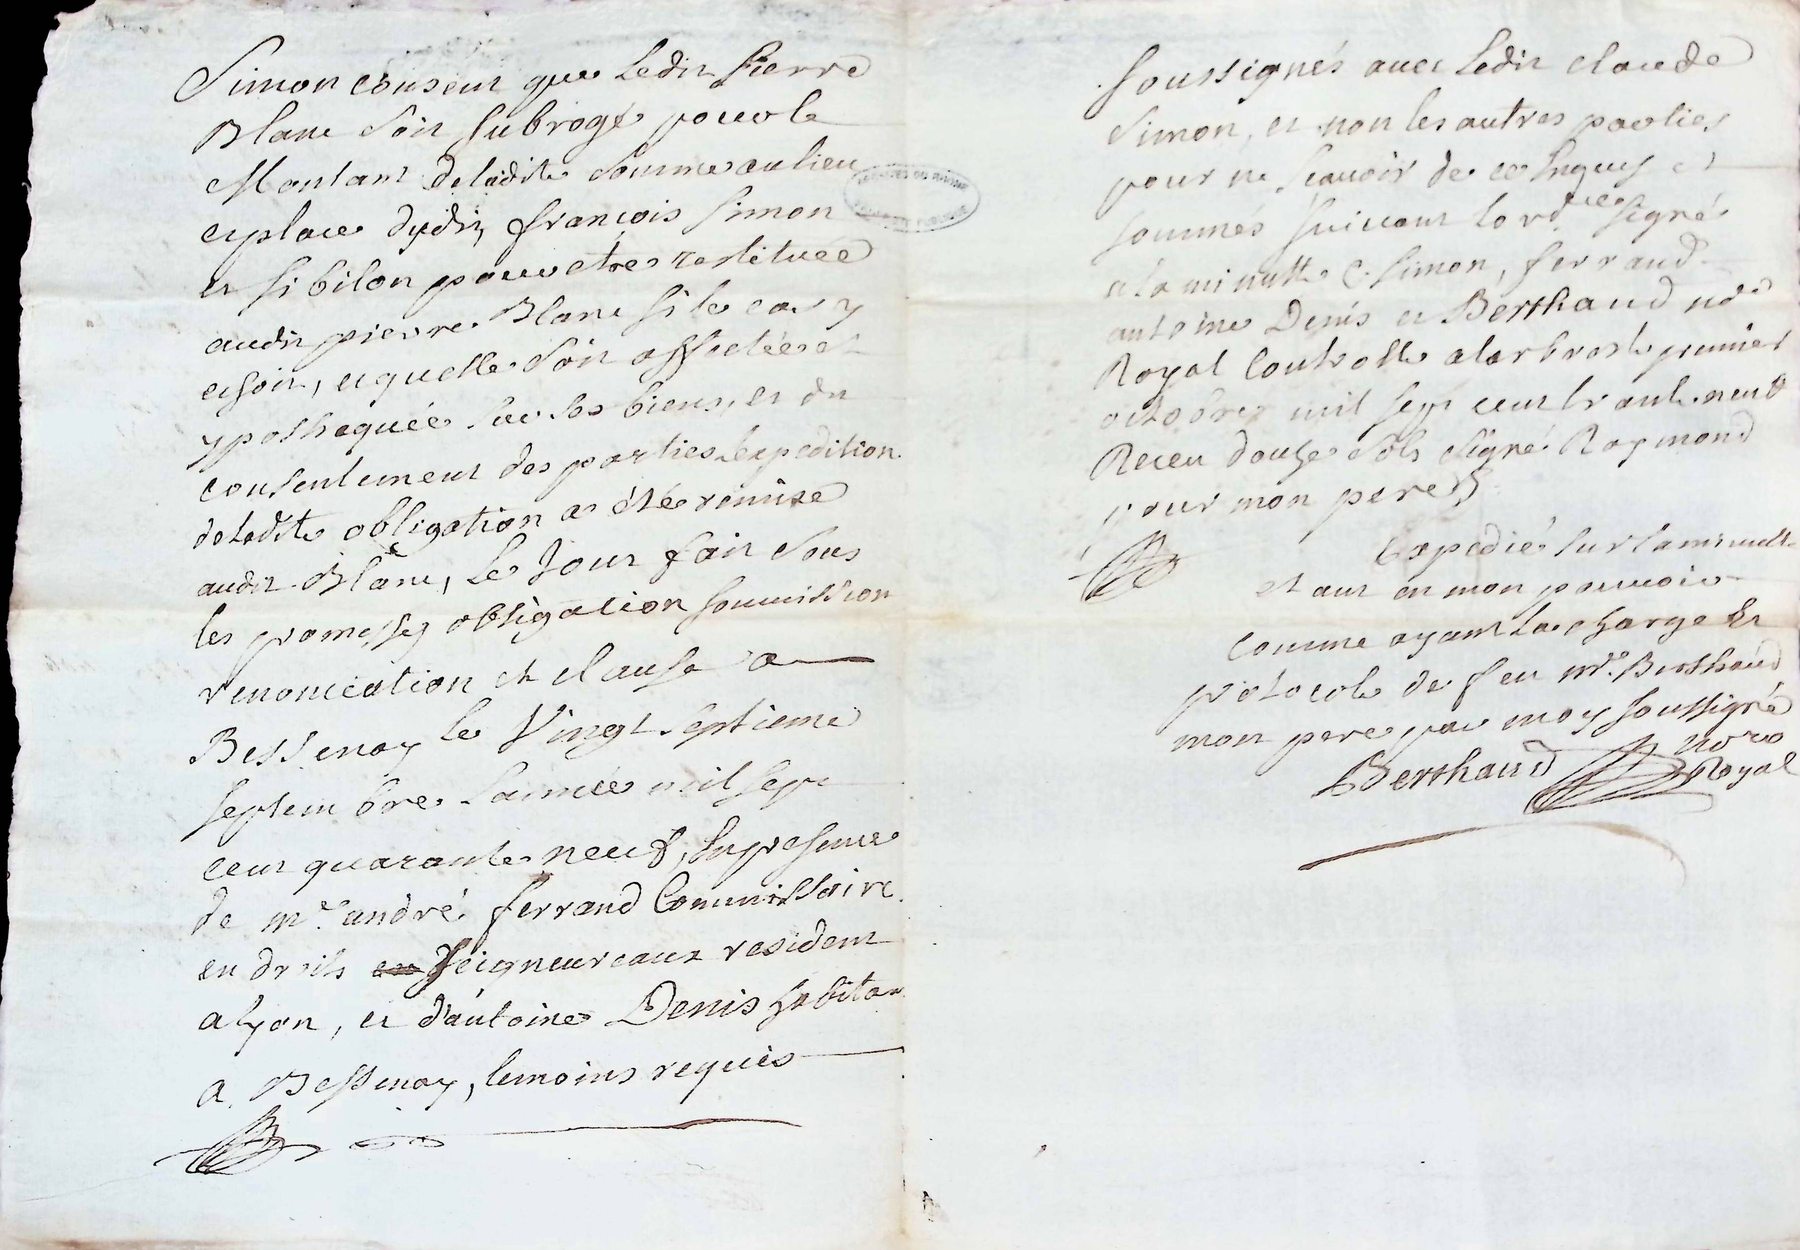 Simon consent que Ledit Pierre
Blanc Soit Subrogé pour le
Montant deladite Somme au lieu
et place dudit françois Simon
et Sibilon pour etre restituée
audit pierre Blanc si le cas y
echoit, et quelle Soit affectée et
ypothequée sur ses biens, et du
consentement des parties Lexpedition
deladte obligation a été remise
audit Blanc, Le Jour fait Sous
les promesses obligation soumission
renonciation et clause a
Bessenay le Vingt Septieme
septembre Lannée mil sept
cent quarante neuf, En presence
de me. andré ferrand Commissaire
en droits Seigneureaux resident
a lyon, et d'antoine Denis habitant
a Bessenay, temoins requis
ARCHIVES DU RHÔNE
soussignés avec Ledit claude
Simon, et non les autres parties
pour ne Scavoir de ce Enquis et
sommés suivant lord.ce Signé
a la minutte C. Simon, ferrand
antoine Denis et Berthaud nore
Royal Controllé alarbresle premier
octobre mil sept cent quarante neuf
Receu douze Sols Signé Raymond
pour mon pere
Expedié sur la minutte
etant en mon pouvoir
comme ayant la charge Et
protocole de feu me. Berthaud
mon pere par moy soussigné
Berthaud nore
Royal